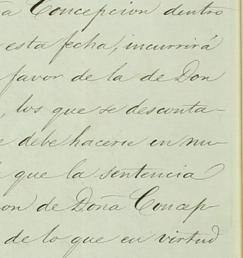 a Concepcion dentro
esta fecha, incurrirá
favor de la de Don
, los que se desconta-
e debe hacerse en mu-
que la sentencia
on de Doña Concep-
de lo que en virtud